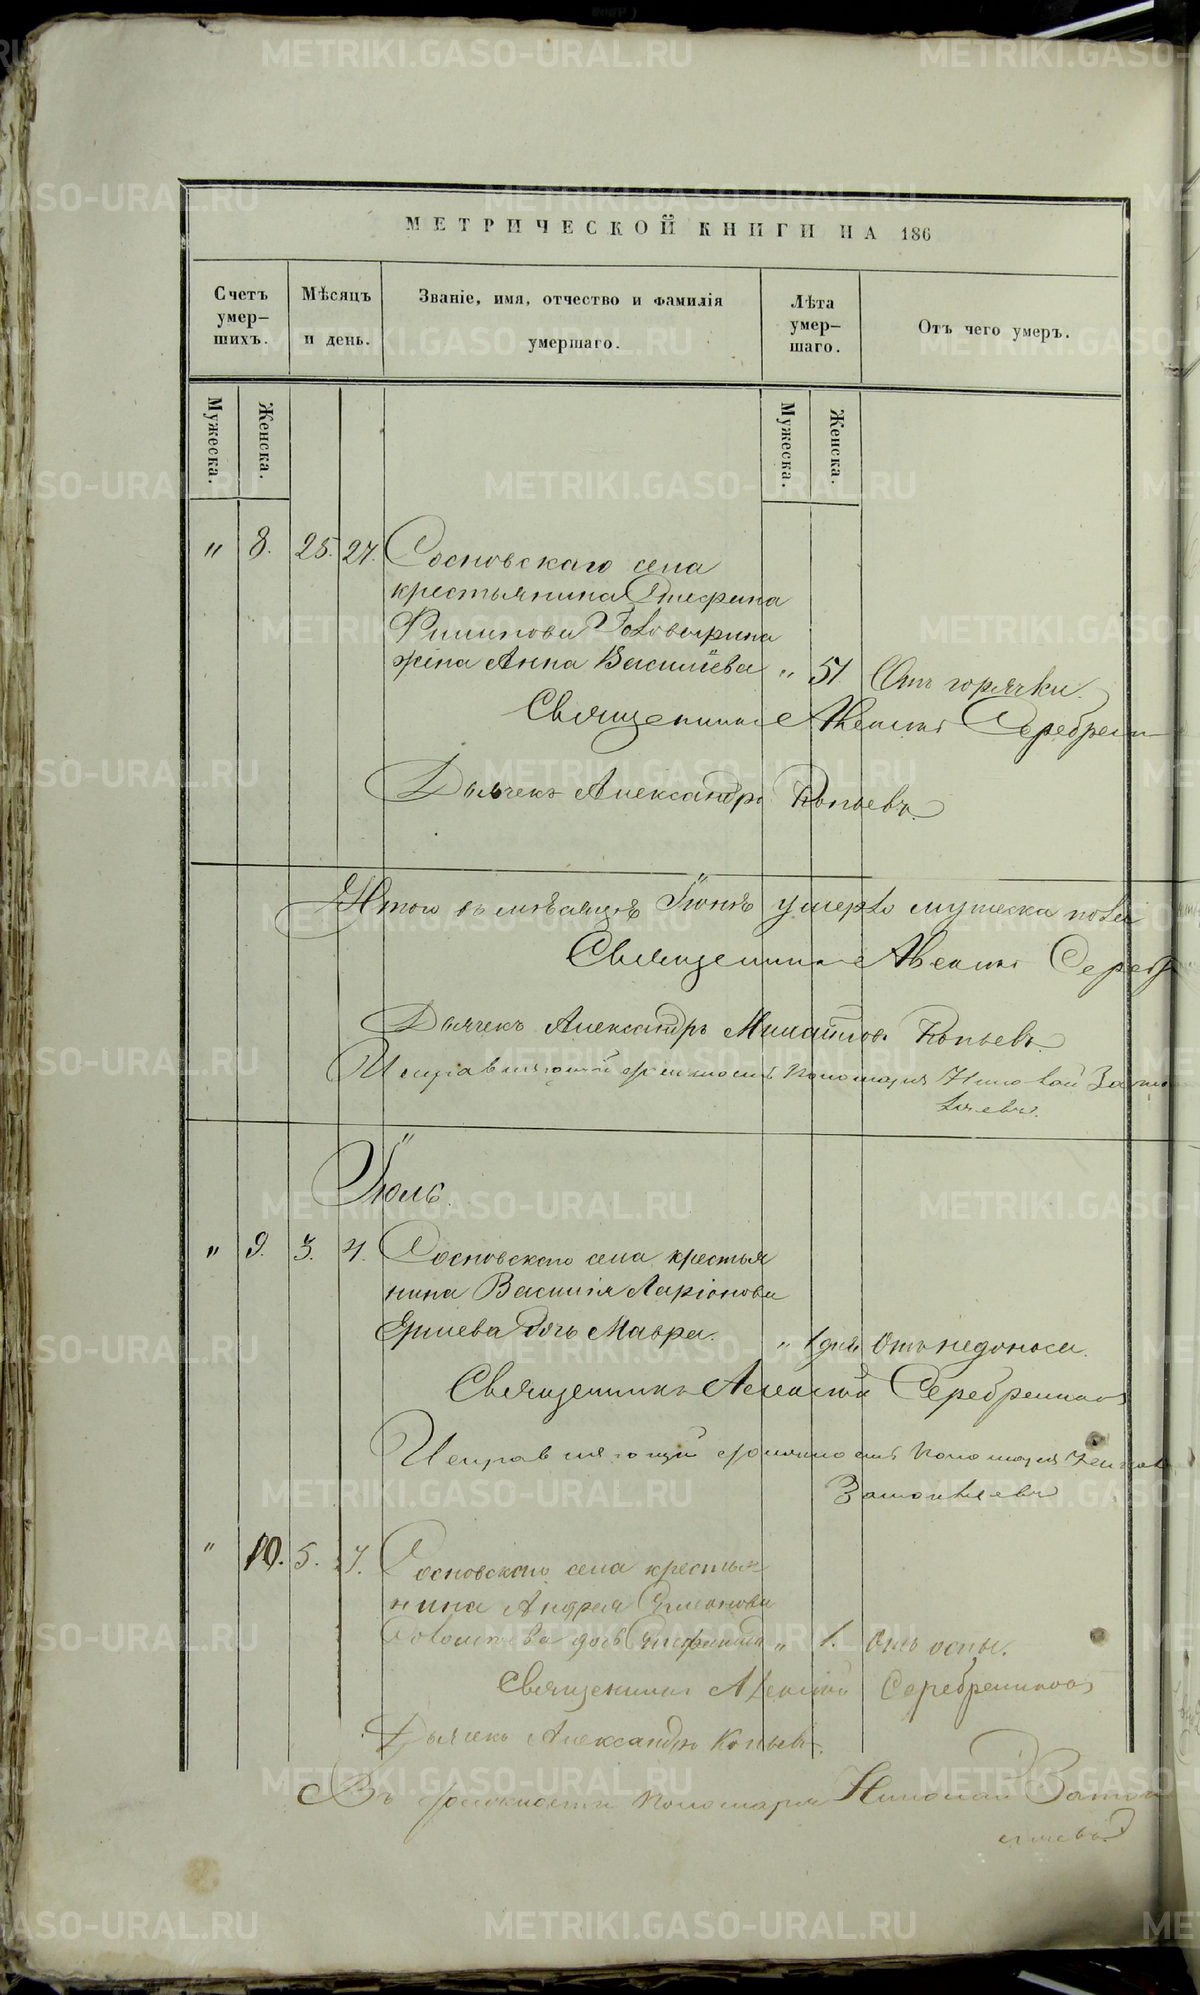 МЕТРИЧЕСКОЙ КНИГИ НА 186
Счетъ умер-шихъ.
Мѣсяцъ и день.
Званіе, имя, отчество и фамилія умершаго.
Лѣта умер-шаго.
Отъ чего умеръ.
Мужеска.
Женска.
Мужеска.
Женска.
" 8. 25. 27. Сосновскаго села
крестьянина Стефана
Филипова
жена Анна Васильева " 51 Отъ горячки.
Священникъ Алексій
Дьячекъ Александръ Копьевъ.
Итого въ мѣсяцѣ Іюнѣ умерло мужеска пола
Священникъ Алексій
Дьячекъ Александръ Михайловъ Копьевъ.
Исправляющій должность Пономаря Николай
Іюль.
" 9. 3. 4. Сосновскаго села крестья
нина Василія Ларіонова
Ершева дочь Мавра. " 1 дня Отъ недоноса.
Священникъ Алексій Серебренниковъ
Исправляющій должность Пономаря
" 10. 5. 7. Сосновскаго села крестья
нина Андрея Симонова
дочь " 1. Отъ оспы.
Священникъ Алексій Серебренниковъ
Дьячекъ Александръ Копьевъ.
Въ должности Пономаря Николай
METRIKI.GASO-URAL.RU